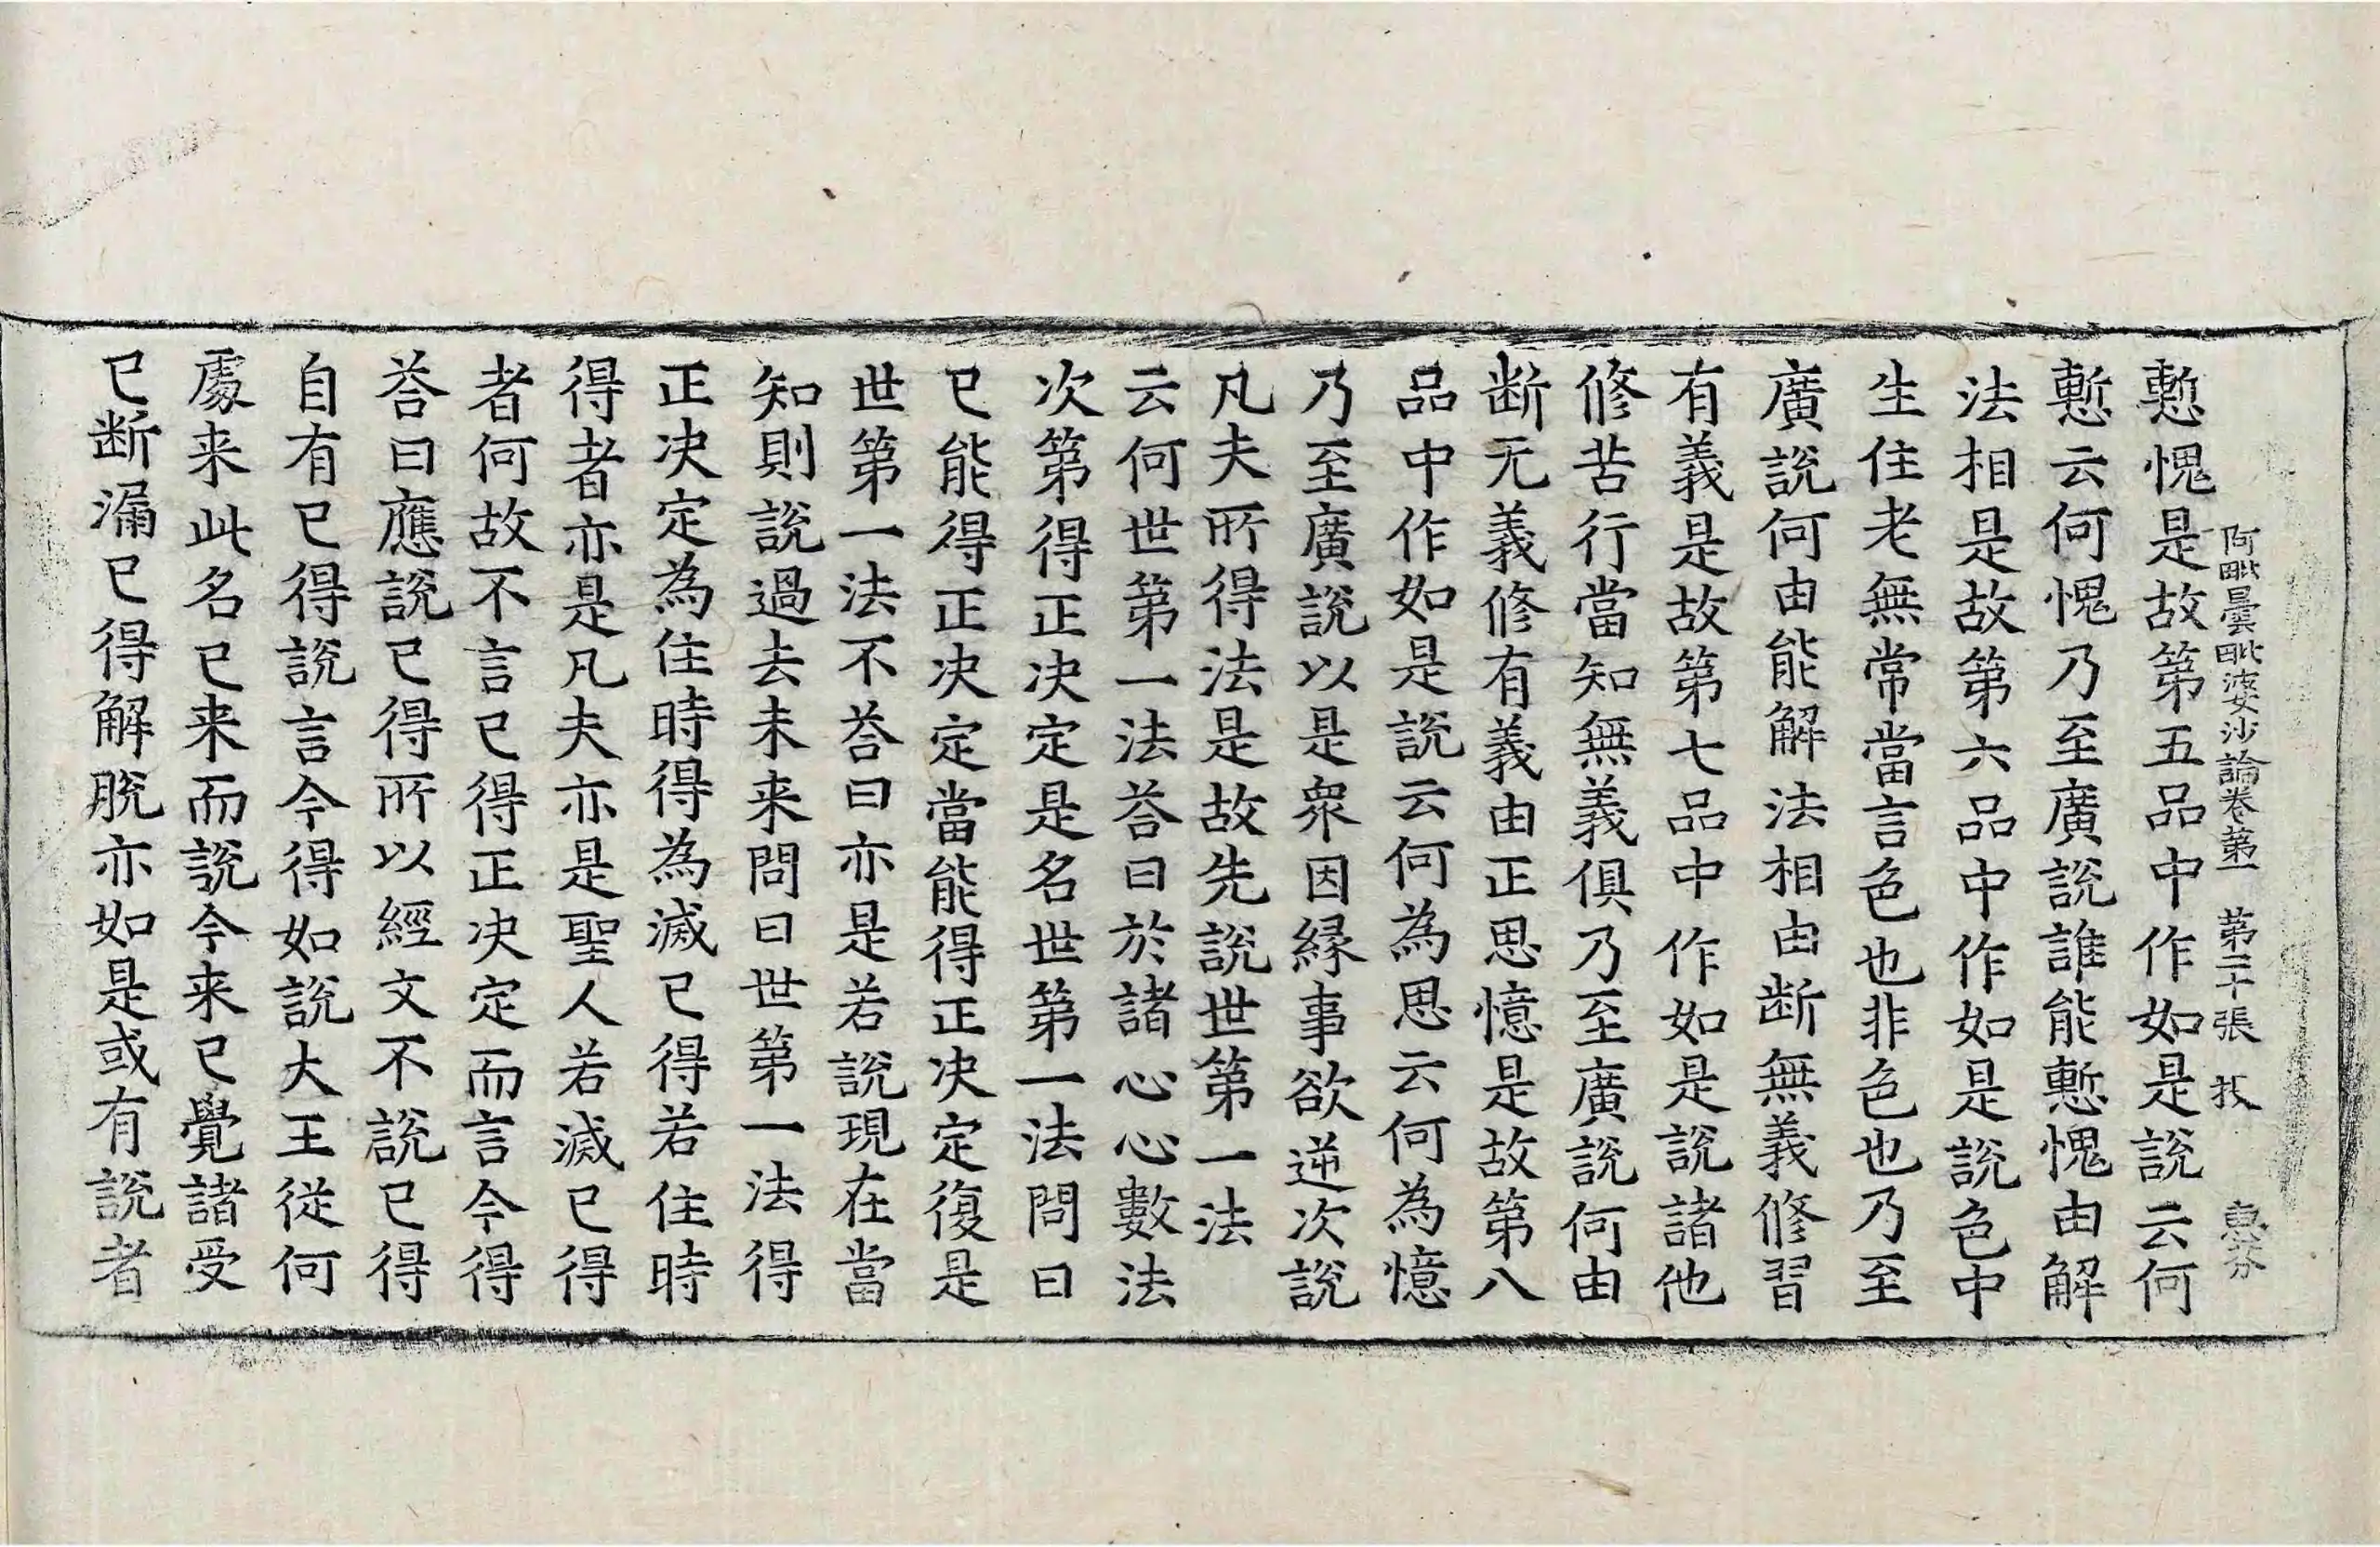 阿毗曇毗婆沙論卷第一 第二十張 技 惠芬
慙愧是故第五品中作如是說云何
慙云何愧乃至廣說誰能慙愧由解
法相是故第六品中作如是說色中
生住老無常當言色也非色也乃至
廣說何由能解法相由斷無義修習
有義是故第七品中作如是說諸他
修苦行當知無義俱乃至廣說何由
断无義修有義由正思憶是故第八
品中作如是說云何為思云何為憶
乃至廣說以是衆因緣事欲逆次說
凡夫所得法是故先說世第一法
云何世第一法荅曰於諸心心數法
次第得正決定是名世第一法問曰
已能得正決定當能得正決定復是
世第一法不荅曰亦是若說現在當
知則說過去未来問曰世第一法得
正決定為住時得為滅已得若住時
得者亦是凡夫亦是聖人若滅已得
者何故不言已得正決定而言今得
荅曰應說已得所以經文不說已得
自有已得說言今得如說大王從何
處来此名已来而說今来已覺諸受
已斷漏已得解脫亦如是或有說者